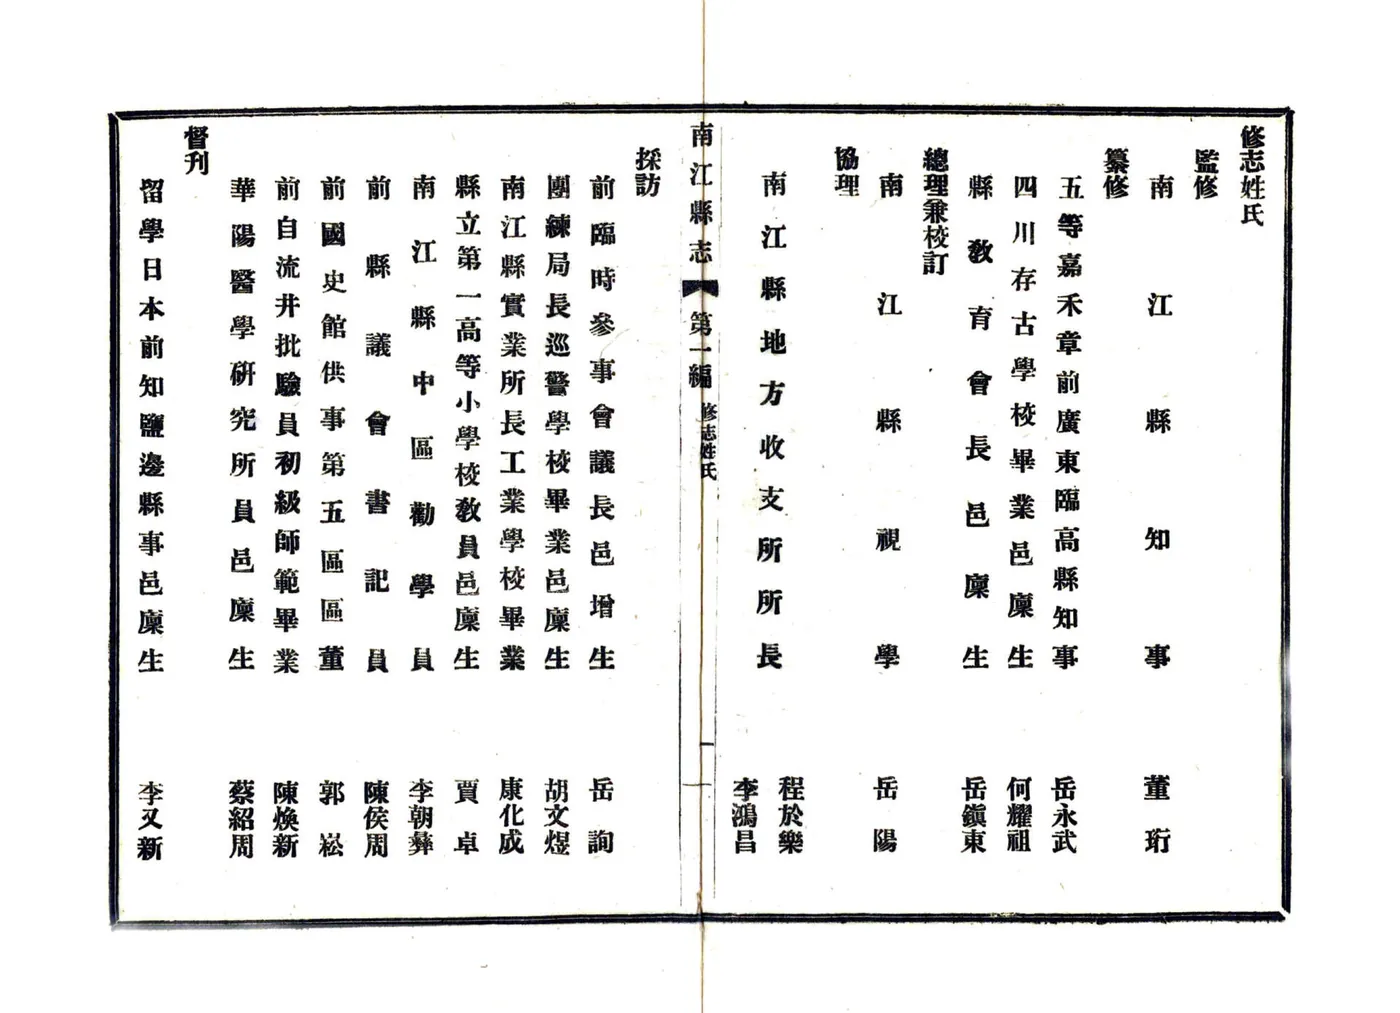 修志姓氏
監修
南江縣知事　董珩
纂修
五等嘉禾章前廣東臨高縣知事　岳永武
四川存古學校畢業邑廩生　何耀祖
縣教育會長邑廩生　岳鎭東
總理兼校訂
南江縣視學　岳陽
協理
南江縣地方收支所所長　程於樂
李鴻昌
南江縣志　第一編　修志姓氏　一
採訪
前臨時參事會議長邑增生　岳詢
團練局長巡警學校畢業邑廩生　胡文煜
南江縣實業所長工業學校畢業　康化成
縣立第一高等小學校教員邑廩生　賈卓
南江縣中區勸學員　李朝彝
前縣議會書記員　陳侯周
前國史館供事第五區區董　郭崧
前自流井批驗員初級師範畢業　陳煥新
華陽醫學硏究所員邑廩生　蔡紹周
督刋
留學日本前知鹽邊縣事邑廩生　李又新